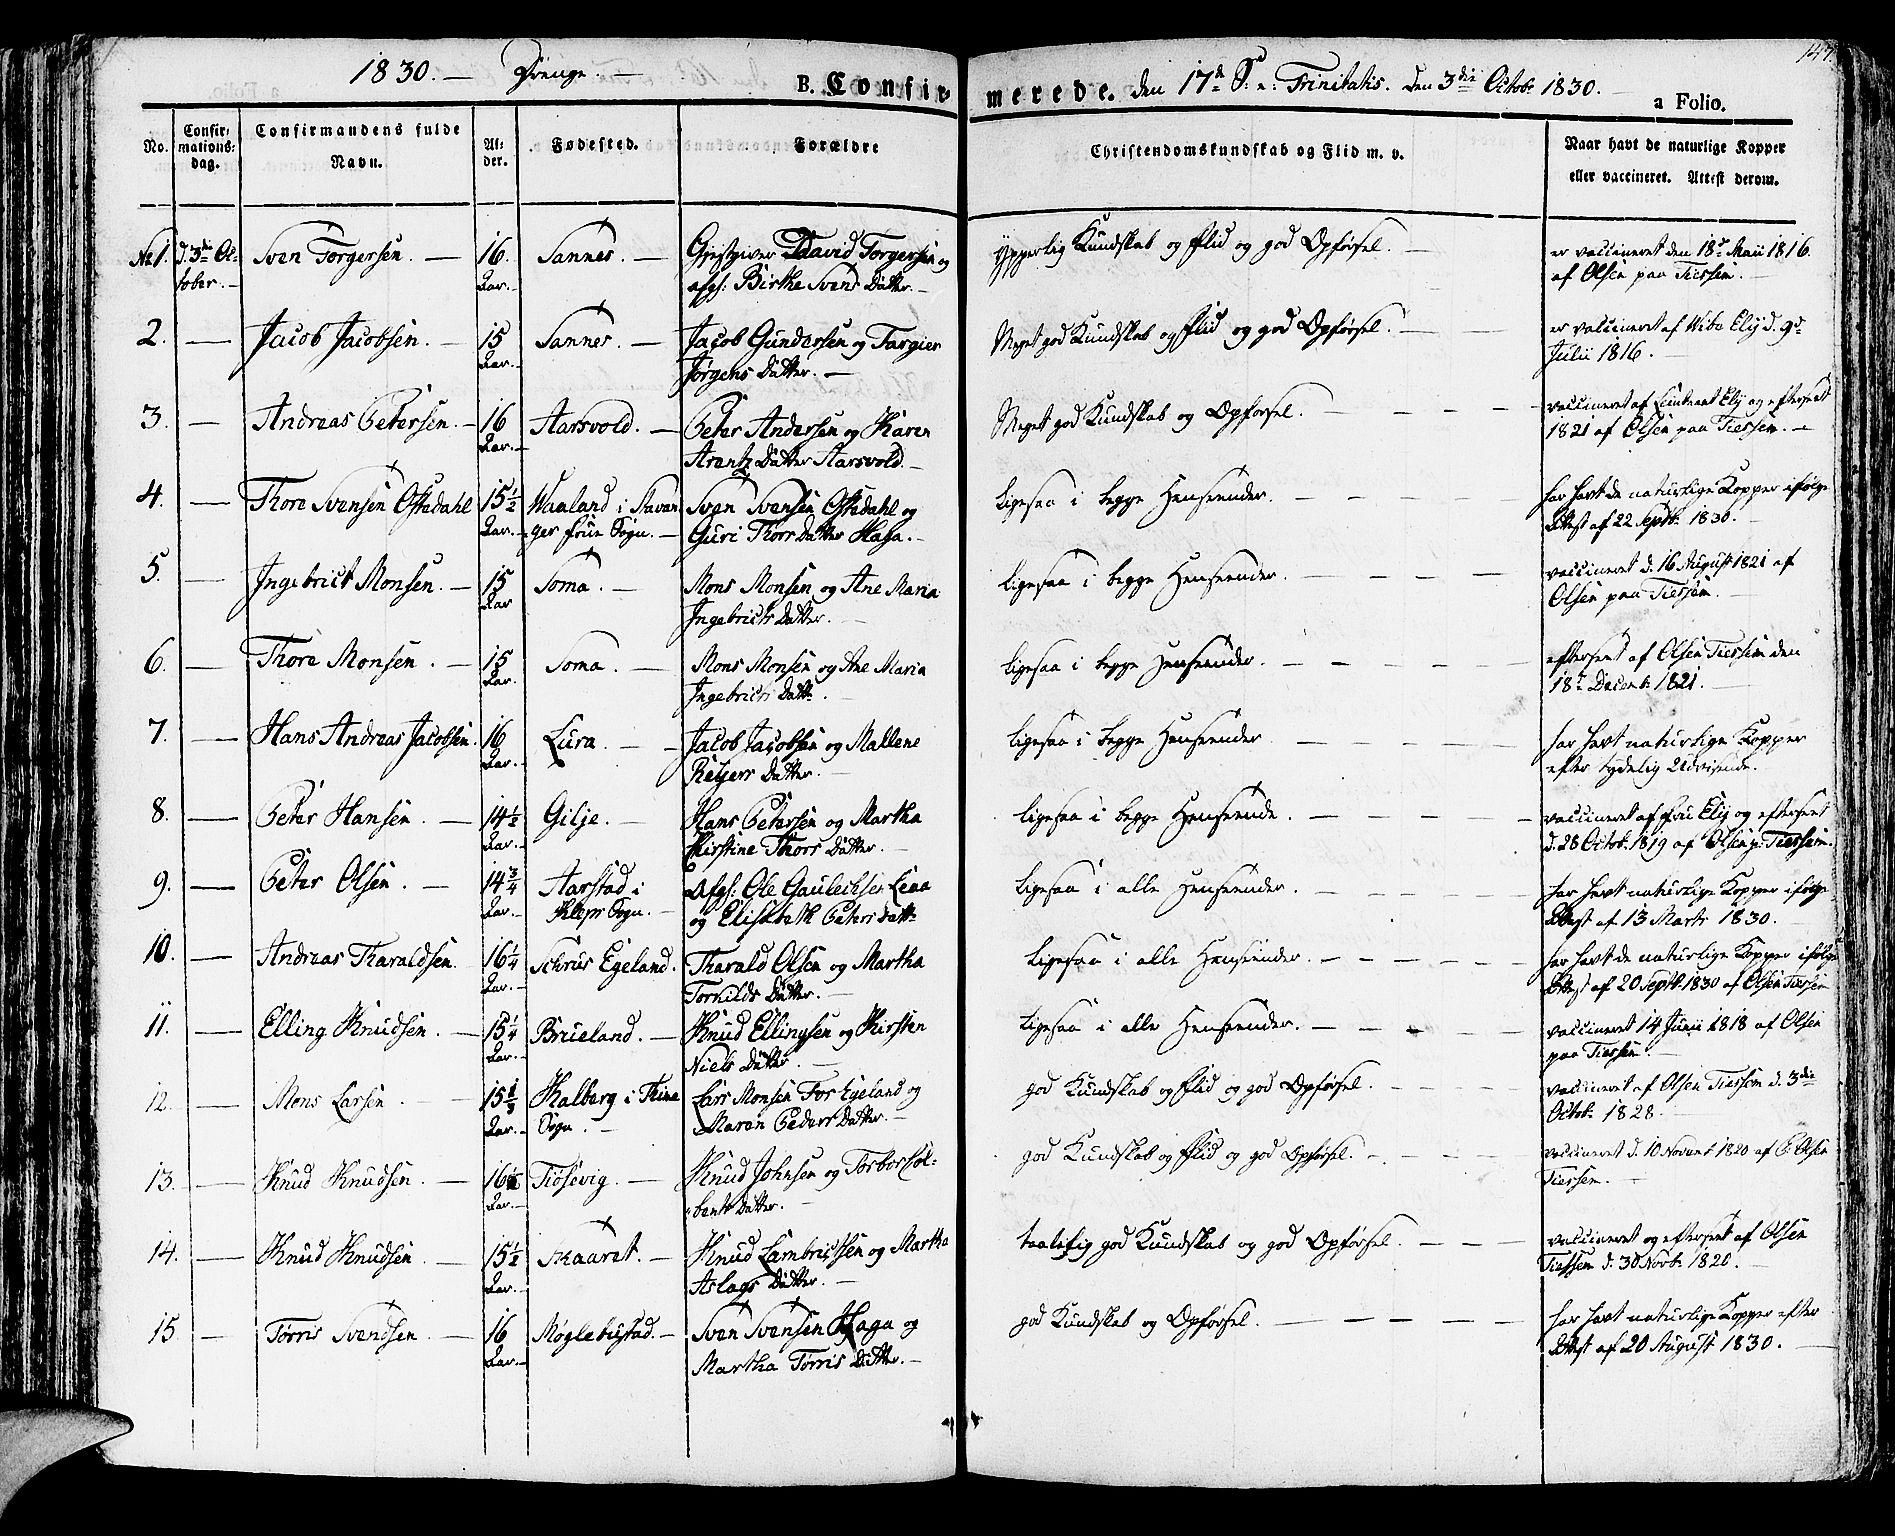 1830. — Drenge. —
B. Confirmerede. den 17de S. e. Trinitatis. Den 3die Octobr 1830.
147
a Folio.
No.
Confirmationsdag.
Confirmandens fulde Navn.
Alder.
Fødested.
Forældre
Christendomskundskab og Flid m. v.
Naar havt de naturlige Kopper
eller vaccineret. Attest derom.
No 1. d. 3die October. — Sven Torgersen. — 16. Aar. — Sannes. — Gjestgiver David Torgersen og
afgl: Birthe Svens Datter. —
Ypperlig Kundskab og Flid og god Opførsel. —
er vaccineret den 18de Maii 1816.
af Olsen paa Tiessem. —
2. — Jacob Jacobsen. — 15 Aar. — Sannes. — Jacob Gundersen og Targier
Jørgens Datter. —
Meget god Kundskab og Flid og god Opførsel. —
er vaccineret af Wibe Ely d. 9de
Julii 1816. —
3. — Andreas Petersen. — 16 Aar. — Aarsvold. — Peter Andersen og Karen
Arentz Datter Aarsvold. —
Meget god Kundskab og Opførsel. —
vaccineret af Lieutenant Ely og efterseet
1821 af Olsen paa Tiessem. —
4. — Thore Svensen Ostedahl 15 1/2 Aar. — Waaland i Stavan
ger frue Sogn. — Sven Svensen Ostedahl og
Guri Thors Datter Hasa. —
Ligesaa i begge Henseender. —
har havt de naturlige Kopper ifølge
Attest af 22 Septbr. 1830. —
5. — Ingebrict Monsen. — 15 Aar Soma. — Mons Monsen og Ane Maria
Ingebricts Datter. —
Ligesaa i begge Henseender. —
vaccineret d. 16 August 1821 af
Olsen paa Tiessem. —
6. — Thore Monsen. — 15 Aar. Soma. — Mons Monsen og Ane Maria
Ingebricts Dattr. —
Ligesaa i begge Henseender. —
efterseet af Olsen Tiessem den
18de Decembr. 1821. —
7. — Hans Andreas Jacobsen. 16 Aar. — Lura. — Jacob Jacobsen og Mallene
Reijers Datter. —
Ligesaa i begge Henseender —
har havt naturlige Kopper
efter tydelig Udvisende.
8. — Peter Hansen. — 14 1/2 Aar. — Gilje. — Hans Petersen og Martha
Kirstine Thors Datter. —
Ligesaa i begge Henseende. —
vaccineret af Fru Ely og efterseet
d. 28 Octob. 1819 af Olsen p. Tiessem.
9. — Peter Olsen. — 14 3/4 Aar. — Aarstad i
Klepps Sogn. — Afgl: Ole Gauteschsen Lea
og Elisabeth Peters Dattr.
Ligesaa i alle Henseender. —
har havt naturlige Kopper ifølge
Attest af 13 Marts 1830. —
10. — Andreas Tharaldsen. 16 1/4 Aar. — Schrus Egeland. Tharald Olsen og Martha
Tornilds Datter. —
Ligesaa i alle Henseender. —
har havt de naturlige Kopper ifølge
Attest af 20 Septbr. 1830 af Olsen Tiessem
11. — Elling Knudsen. — 15 1/4 Aar. — Brueland. — Knud Ellingsen og Kirsten
Niels Datter. —
Ligesaa i alle Henseender. —
vaccineret 14 Junii 1818 af Olsen
paa Tiessem. —
12. — Mons Larsen. — 15 Aar. — Kalberg i Thime
Sogn. — Lars Monsen Fos Egeland og
Maren Peders Datter. —
god Kundskab og Flid og god Opførsel. —
vaccineret af Olsen Tiessem d. 3die
Octobr. 1828. —
13. — Knud Knudsen. — 16 Aar. — Tiøsevig. — Knud Johnsen og Torbor Col-
bents Datter. —
god Kundskab og Flid og god Opførsel. —
vaccineret d. 10 Novembr. 1820 af P. Olsen
Tiessem. —
14. — Knud Knudsen — 15 1/2 Aar. — Skaaret. — Knud Lambrictsen og Martha
Aslags Datter. —
taalelig god Kundskab og god Opførsel. —
vaccineret og efterseet af Olsen
Tiessem d. 30 Novbr. 1820. —
15 — Tørris Svendsen. — 16 Aar. — Møglebustad. — Sven Svensen Haga og
Martha Tørris Datter. —
god Kundskab og Opførsel. —
har havt naturlige Kopper efter
Attest af 20 August 1830. —